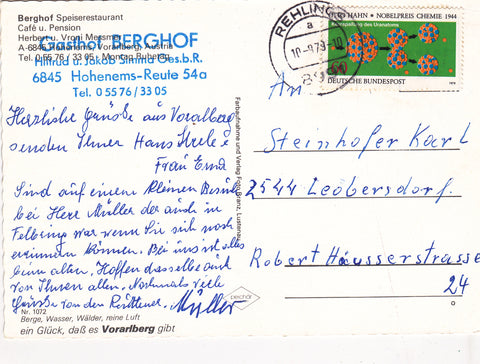 Berghof Speiserestaurant
Café u. Pension
Herbert u. Vroni Messmer
A-6845 Hohenems, Vorarlberg, Austria
Tel. 0 55 76 / Montag Ruhetag
Gasthof BERGHOF
Hilmud u. Jakob Ges.b.R.
6845 Hohenems-Reute 54a
Tel. 0 55 76/33 05
Herzliche Grüsse aus Vorarlberg
senden Ihnen Hans
Frau Erna
Sind auf einem kleinen Besuch
bei Herr Müller der auch in
war wenn Sie sich noch
erinnern können. Bei uns ist alles
beim alten. Hoffen dasselbe auch
von Ihnen allen. Nochmals viele
Grüsse von den
Müller
Nr. 1072
Berge, Wasser, Wälder, reine Luft
ein Glück, daß es Vorarlberg gibt
Farbaufnahme und Verlag Foto Branz, Lustenau
REHLING
a
10-9.79-10
OTTO HAHN · NOBELPREIS CHEMIE 1944
Kernspaltung des Uranatoms
60
DEUTSCHE BUNDESPOST
An
Steinhofer Karl
2544 Leobersdorf.
Robert Häusserstrasse
24